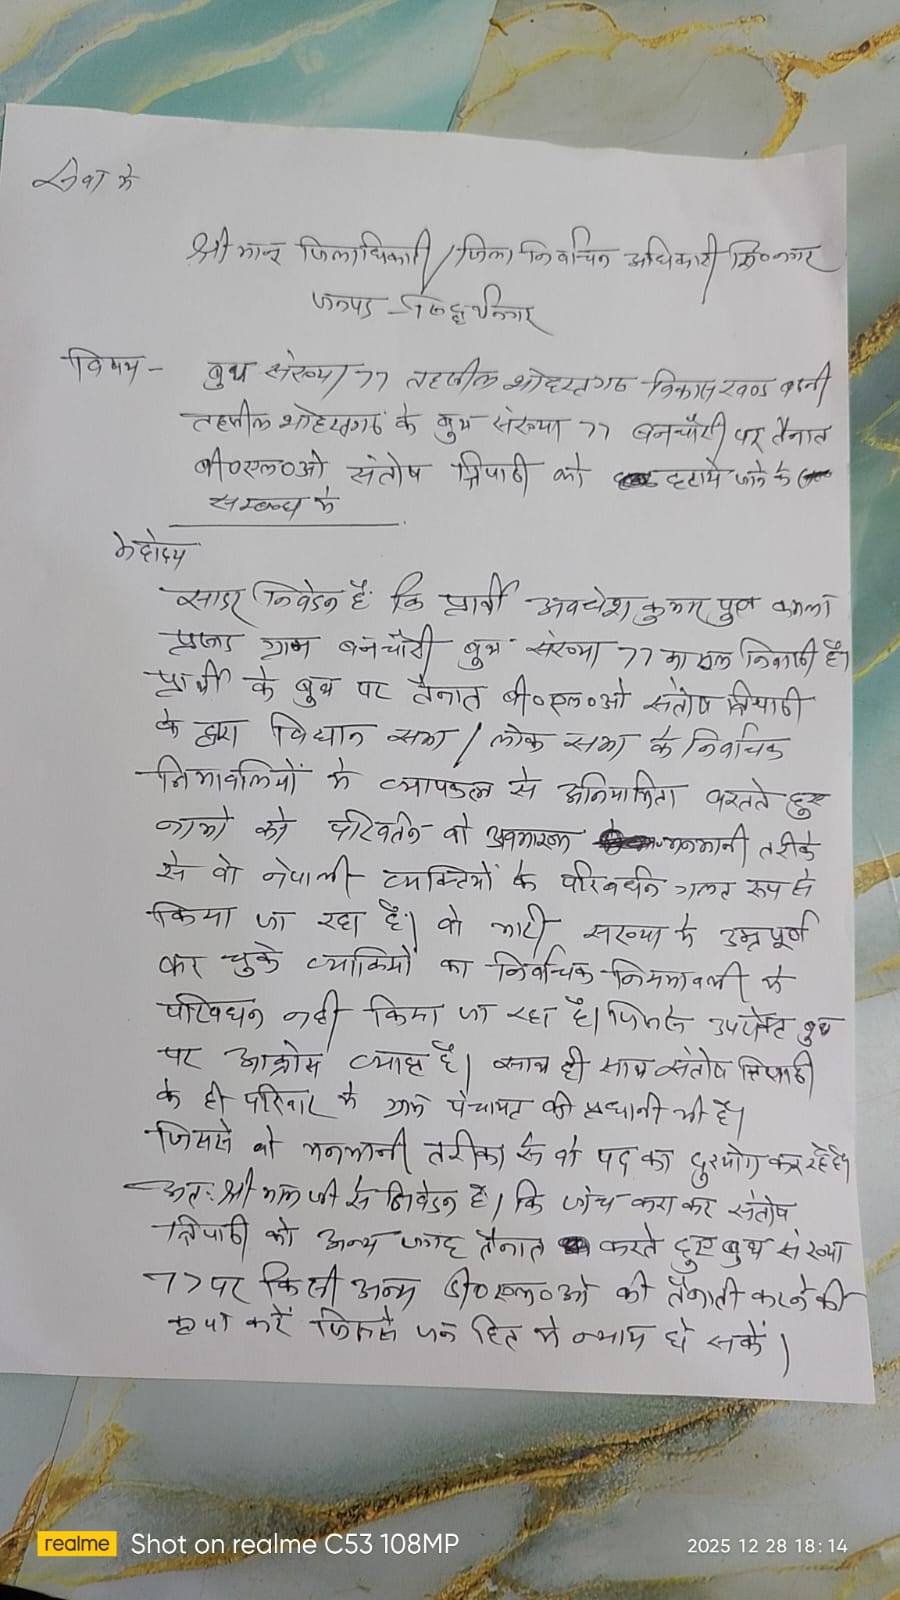 सेवा मे
श्रीमान जिलाधिकारी / जिला निर्वाचन अधिकारी सि०नगर
जनपद - सिद्धार्थनगर
विषय - बुथ संख्या 77 तहसील शोहरतगढ विकास खण्ड बढनी
तहसील शोहरतगढ के बुथ संख्या 77 बनचौरी पर तैनात
बी०एल०ओ संतोष त्रिपाठी को हटाये जाने के
सम्बन्ध मे
महोदय
सादर निवेदन है कि प्रार्थी अवधेश कुमार पुत्र कमला
प्रसाद ग्राम बनचौरी बुथ संख्या 77 का मूल निवासी है।
प्रार्थी के बुथ पर तैनात बी०एल०ओ संतोष त्रिपाठी
के द्वारा विधान सभा / लोक सभा के निर्वाचक
नियमावलियों मे व्यापकरूप से अनियामिता बरतते हुए
नामो को परिवर्तन वो मनमानी तरीके
से वो नेपाली व्यक्तियों के परिवर्धन गलत रूप से
किया जा रहा है। वो भारी संख्या मे उम्र पूर्ण
कर चुके व्याक्तियों का निर्वाचक नियमावली मे
परिवधन नही किया जा रहा है। जिससे उपरोक्त बुथ
पर आक्रोस व्याप्त है। साथ ही साथ संतोष त्रिपाठी
के ही परिवार मे ग्राम पंचायत की प्रधानी भी है।
जिससे वो मनमानी तरीका से वो पद का दुरपयोग कर रहे है।
अत: श्रीमान जी से निवेदन है। कि जांच करा कर संतोष
त्रिपाठी को अन्य जगह तैनात करते हुए बुथ संख्या
77 पर किसी अन्य बी०एल०ओ की तैनाती करने की
कृपा करें जिससे जन हित मे न्याय हो सकें।
realme Shot on realme C53 108MP
2025 12 28 18:14